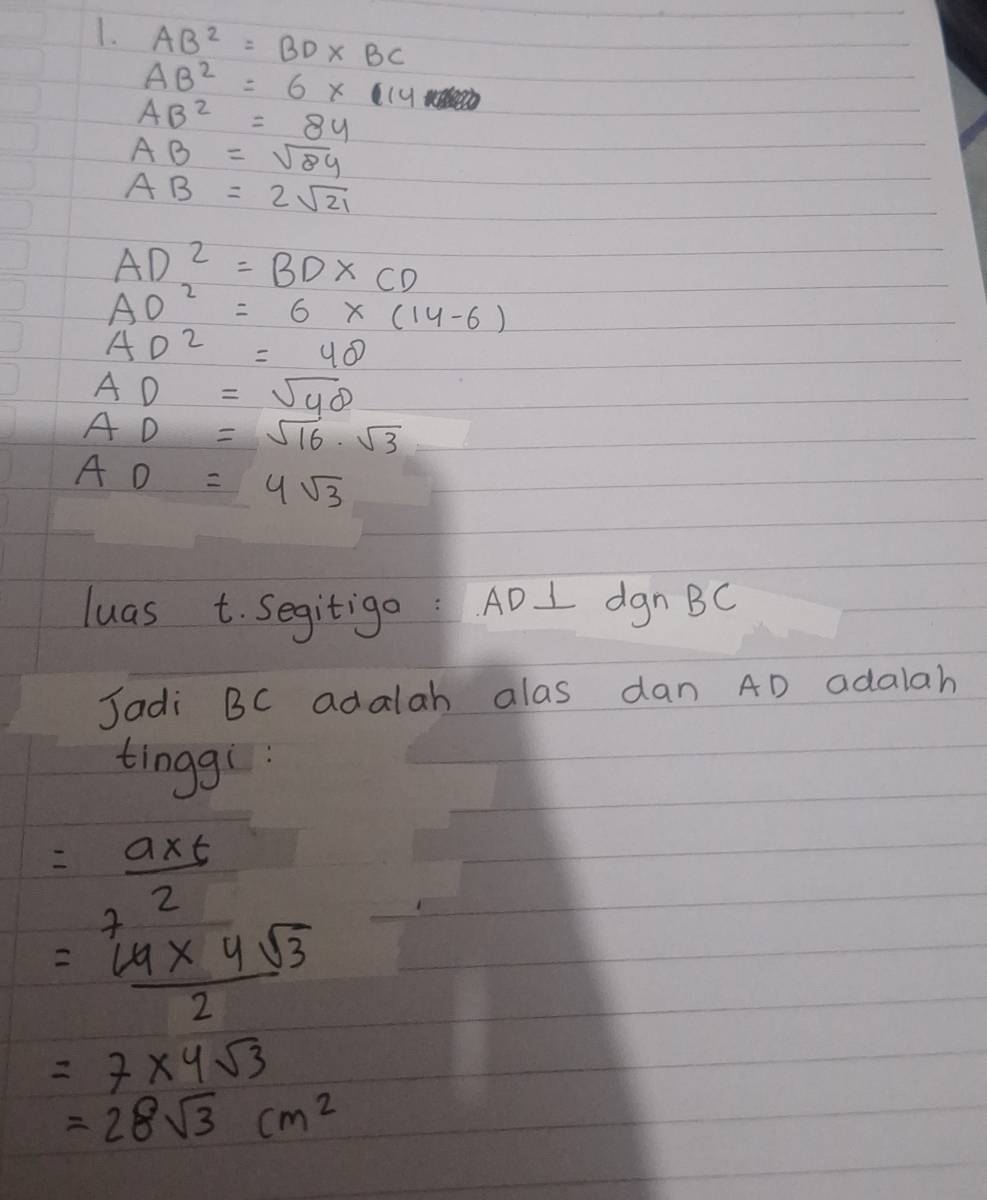 1. AB² = BD × BC
AB² = 6 × (14
AB² = 84
AB = √84
AB = 2√21
AD² = BD × CD
AD² = 6 × (14-6)
AD² = 48
AD = √48
AD = √16 . √3
AD = 4√3
luas t. Segitiga : AD ⊥ dgn BC
Jadi BC adalah alas dan AD adalah
tinggi :
= a×t
2
7
= 14 × 4√3
2
= 7 × 4√3
= 28√3 cm²